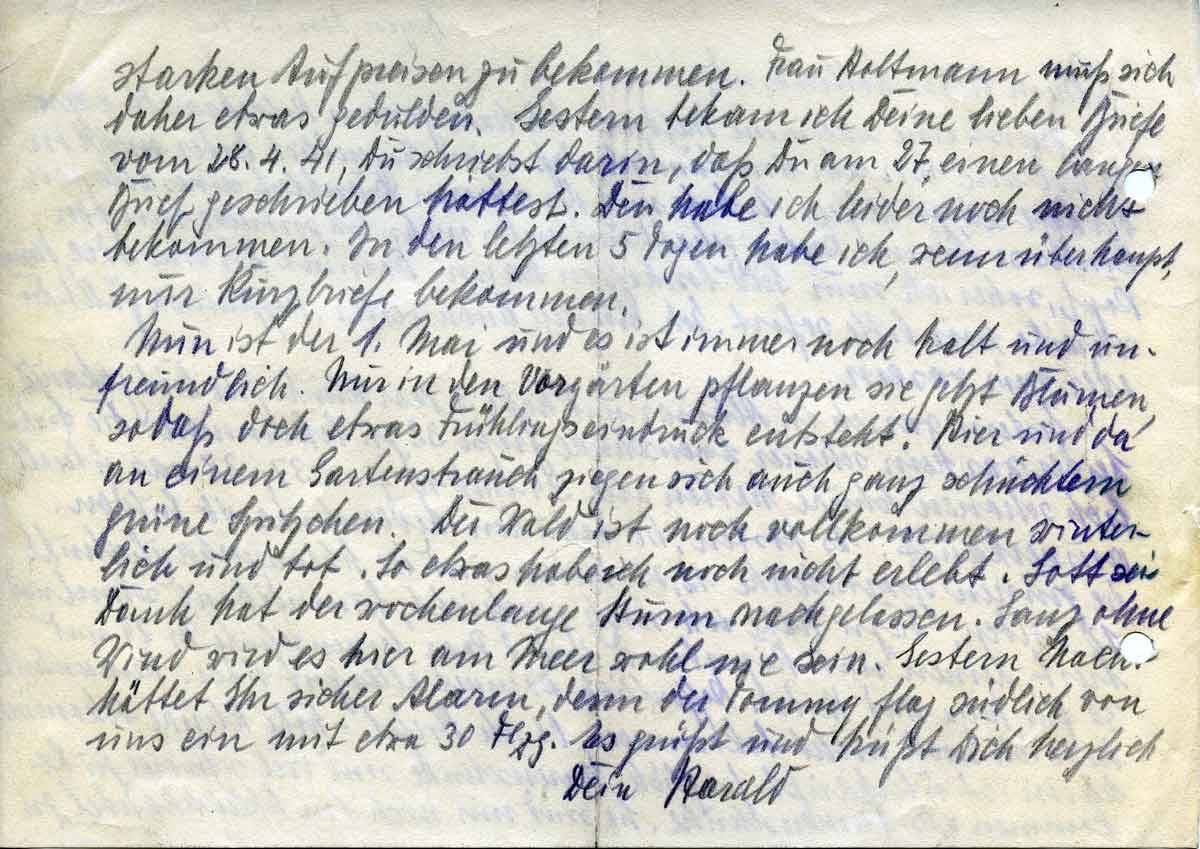 starken Aufpreisen zu bekommen. Frau Holtmann muß sich
daher etwas gedulden. Gestern bekam ich Deine lieben Briefe
vom 28. 4. 41, Du schriebst darin, daß Du am 27. einen langen
Brief geschrieben hattest. Den habe ich leider noch nicht
bekommen. In den letzten 5 Tagen habe ich, wenn überhaupt,
nur Kurzbriefe bekommen.
Nun ist der 1. Mai und es ist immer noch kalt und un-
freundlich. Nur in den Vorgärten pflanzen sie jetzt Blumen,
sodaß doch etwas Frühlingseindruck entsteht. Hier und da
an einem Gartenstrauch zeigen sich auch ganz schüchtern
grüne Spitzchen. Der Wald ist noch vollkommen winter-
lich und tot. So etwas habe ich noch nicht erlebt. Gott sei
Dank hat der wochenlange Sturm nachgelassen. Ganz ohne
Wind wird es hier am Meer wohl nie sein. Gestern Nacht
hättet Ihr sicher Alarm, denn der Tommy flog südlich von
uns ein mit etwa 30 Flzg. Es grüßt und küßt Dich herzlich
Dein Harald